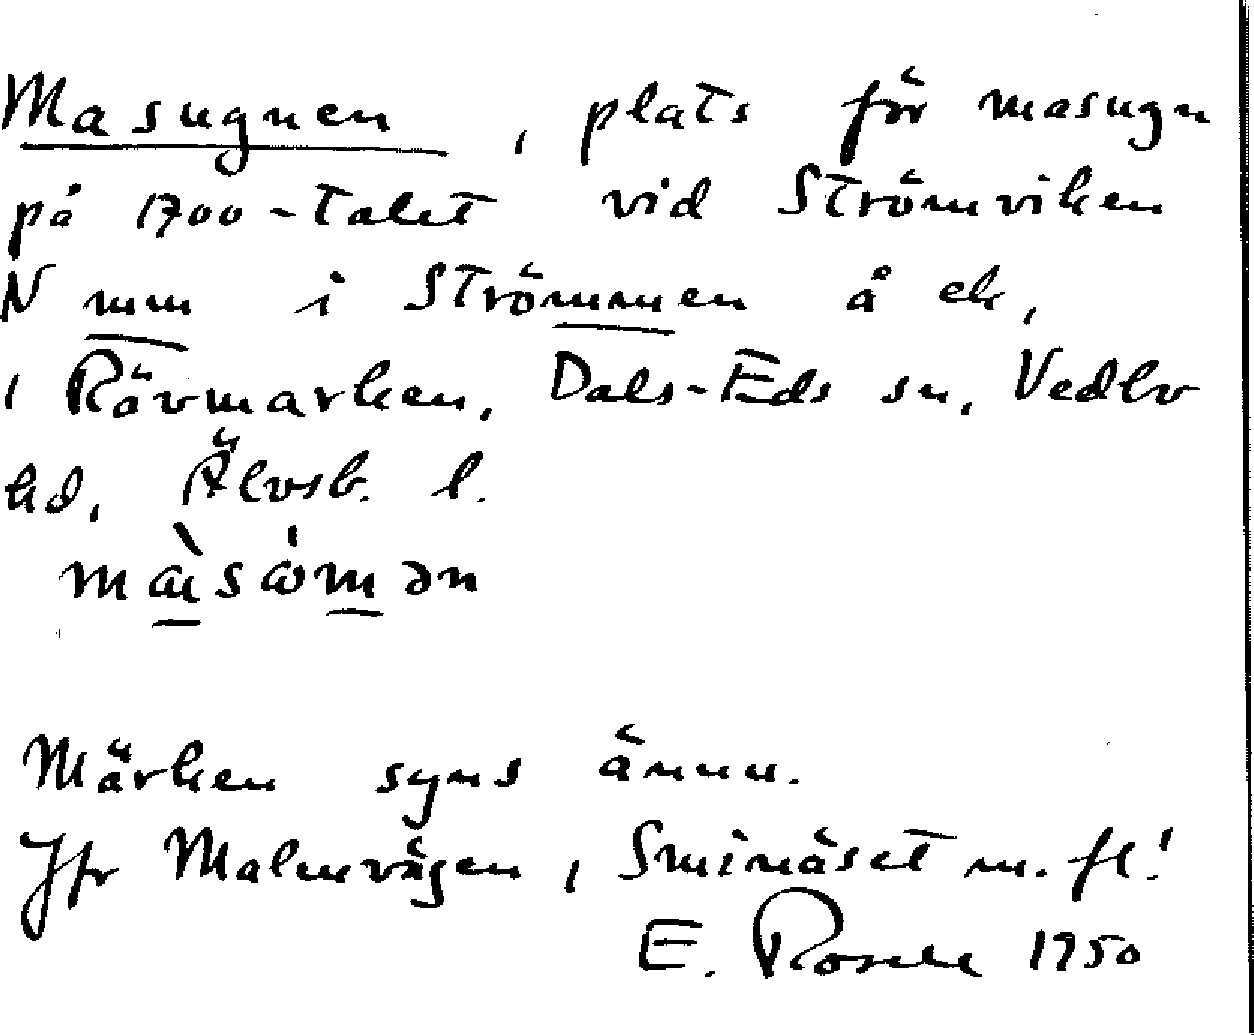 Masugnen, plats för masugn
på 1700-talet vid Strömviken
N mm i Strömmen å ek,
i Rävmarken, Dals-Eds sn, Vedbo
hd, Älvsb. l.
Märken syns ännu.
Jfr Malmvägen, Sminäset m. fl.!
E. Rosell 1950